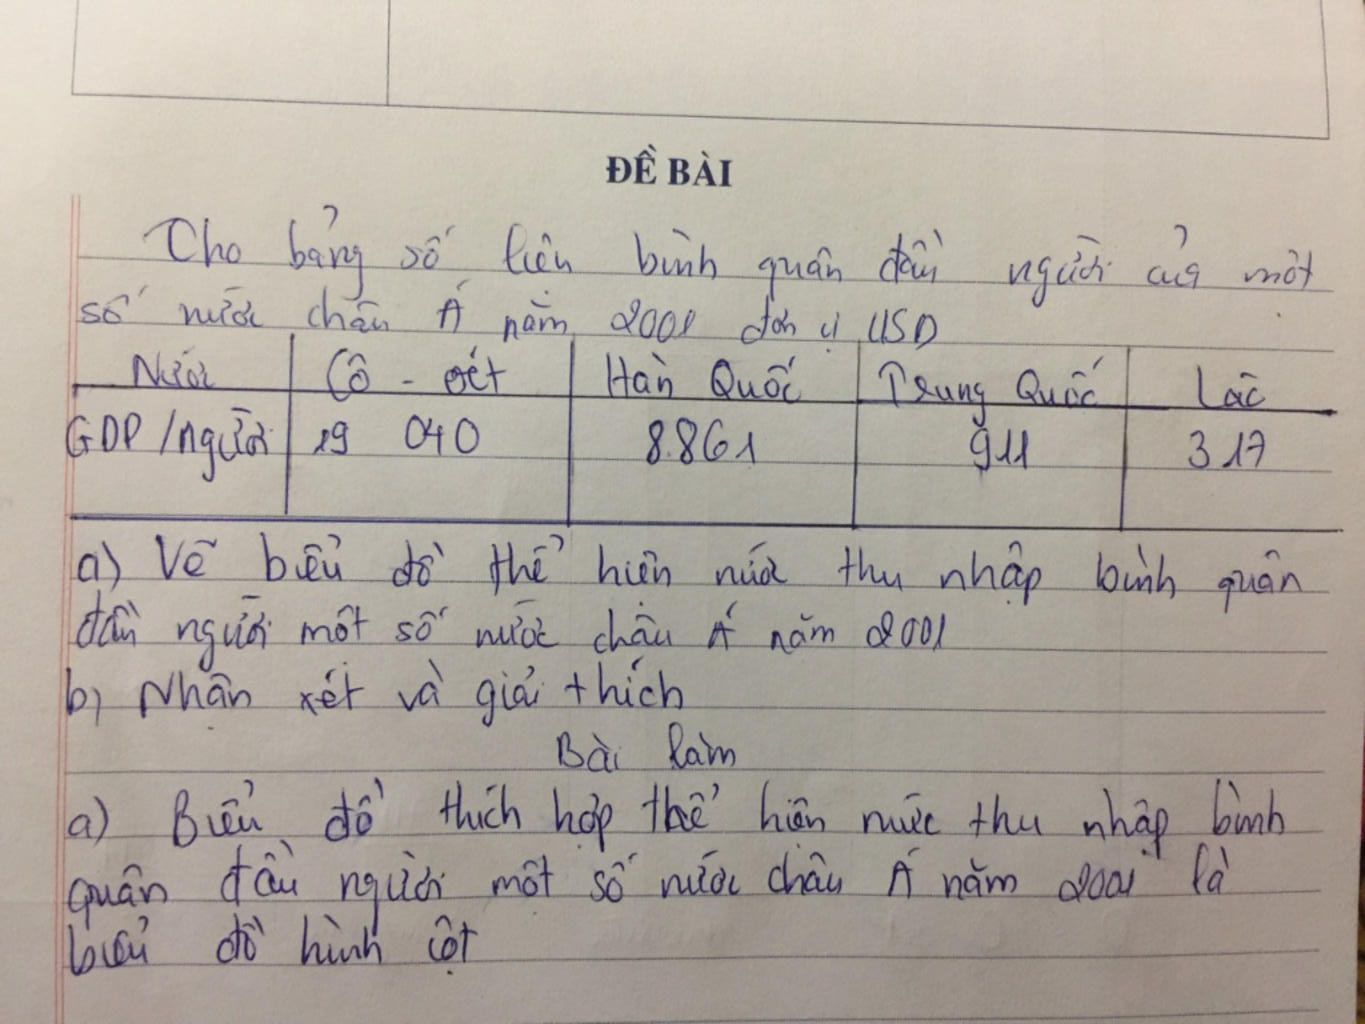 ĐỀ BÀI
Cho bảng số liệu bình quân đầu người của một
số nước châu Á năm 2001 đơn vị USD
Nước Cô - oét Hàn Quốc Trung Quốc Lào
GDP/người 19 040 8.861 911 317
a) Vẽ biểu đồ thể hiện mức thu nhập bình quân
đầu người một số nước châu Á năm 2001
b) Nhận xét và giải thích
Bài làm
a) Biểu đồ thích hợp thể hiện mức thu nhập bình
quân đầu người một số nước châu Á năm 2001 là
biểu đồ hình cột